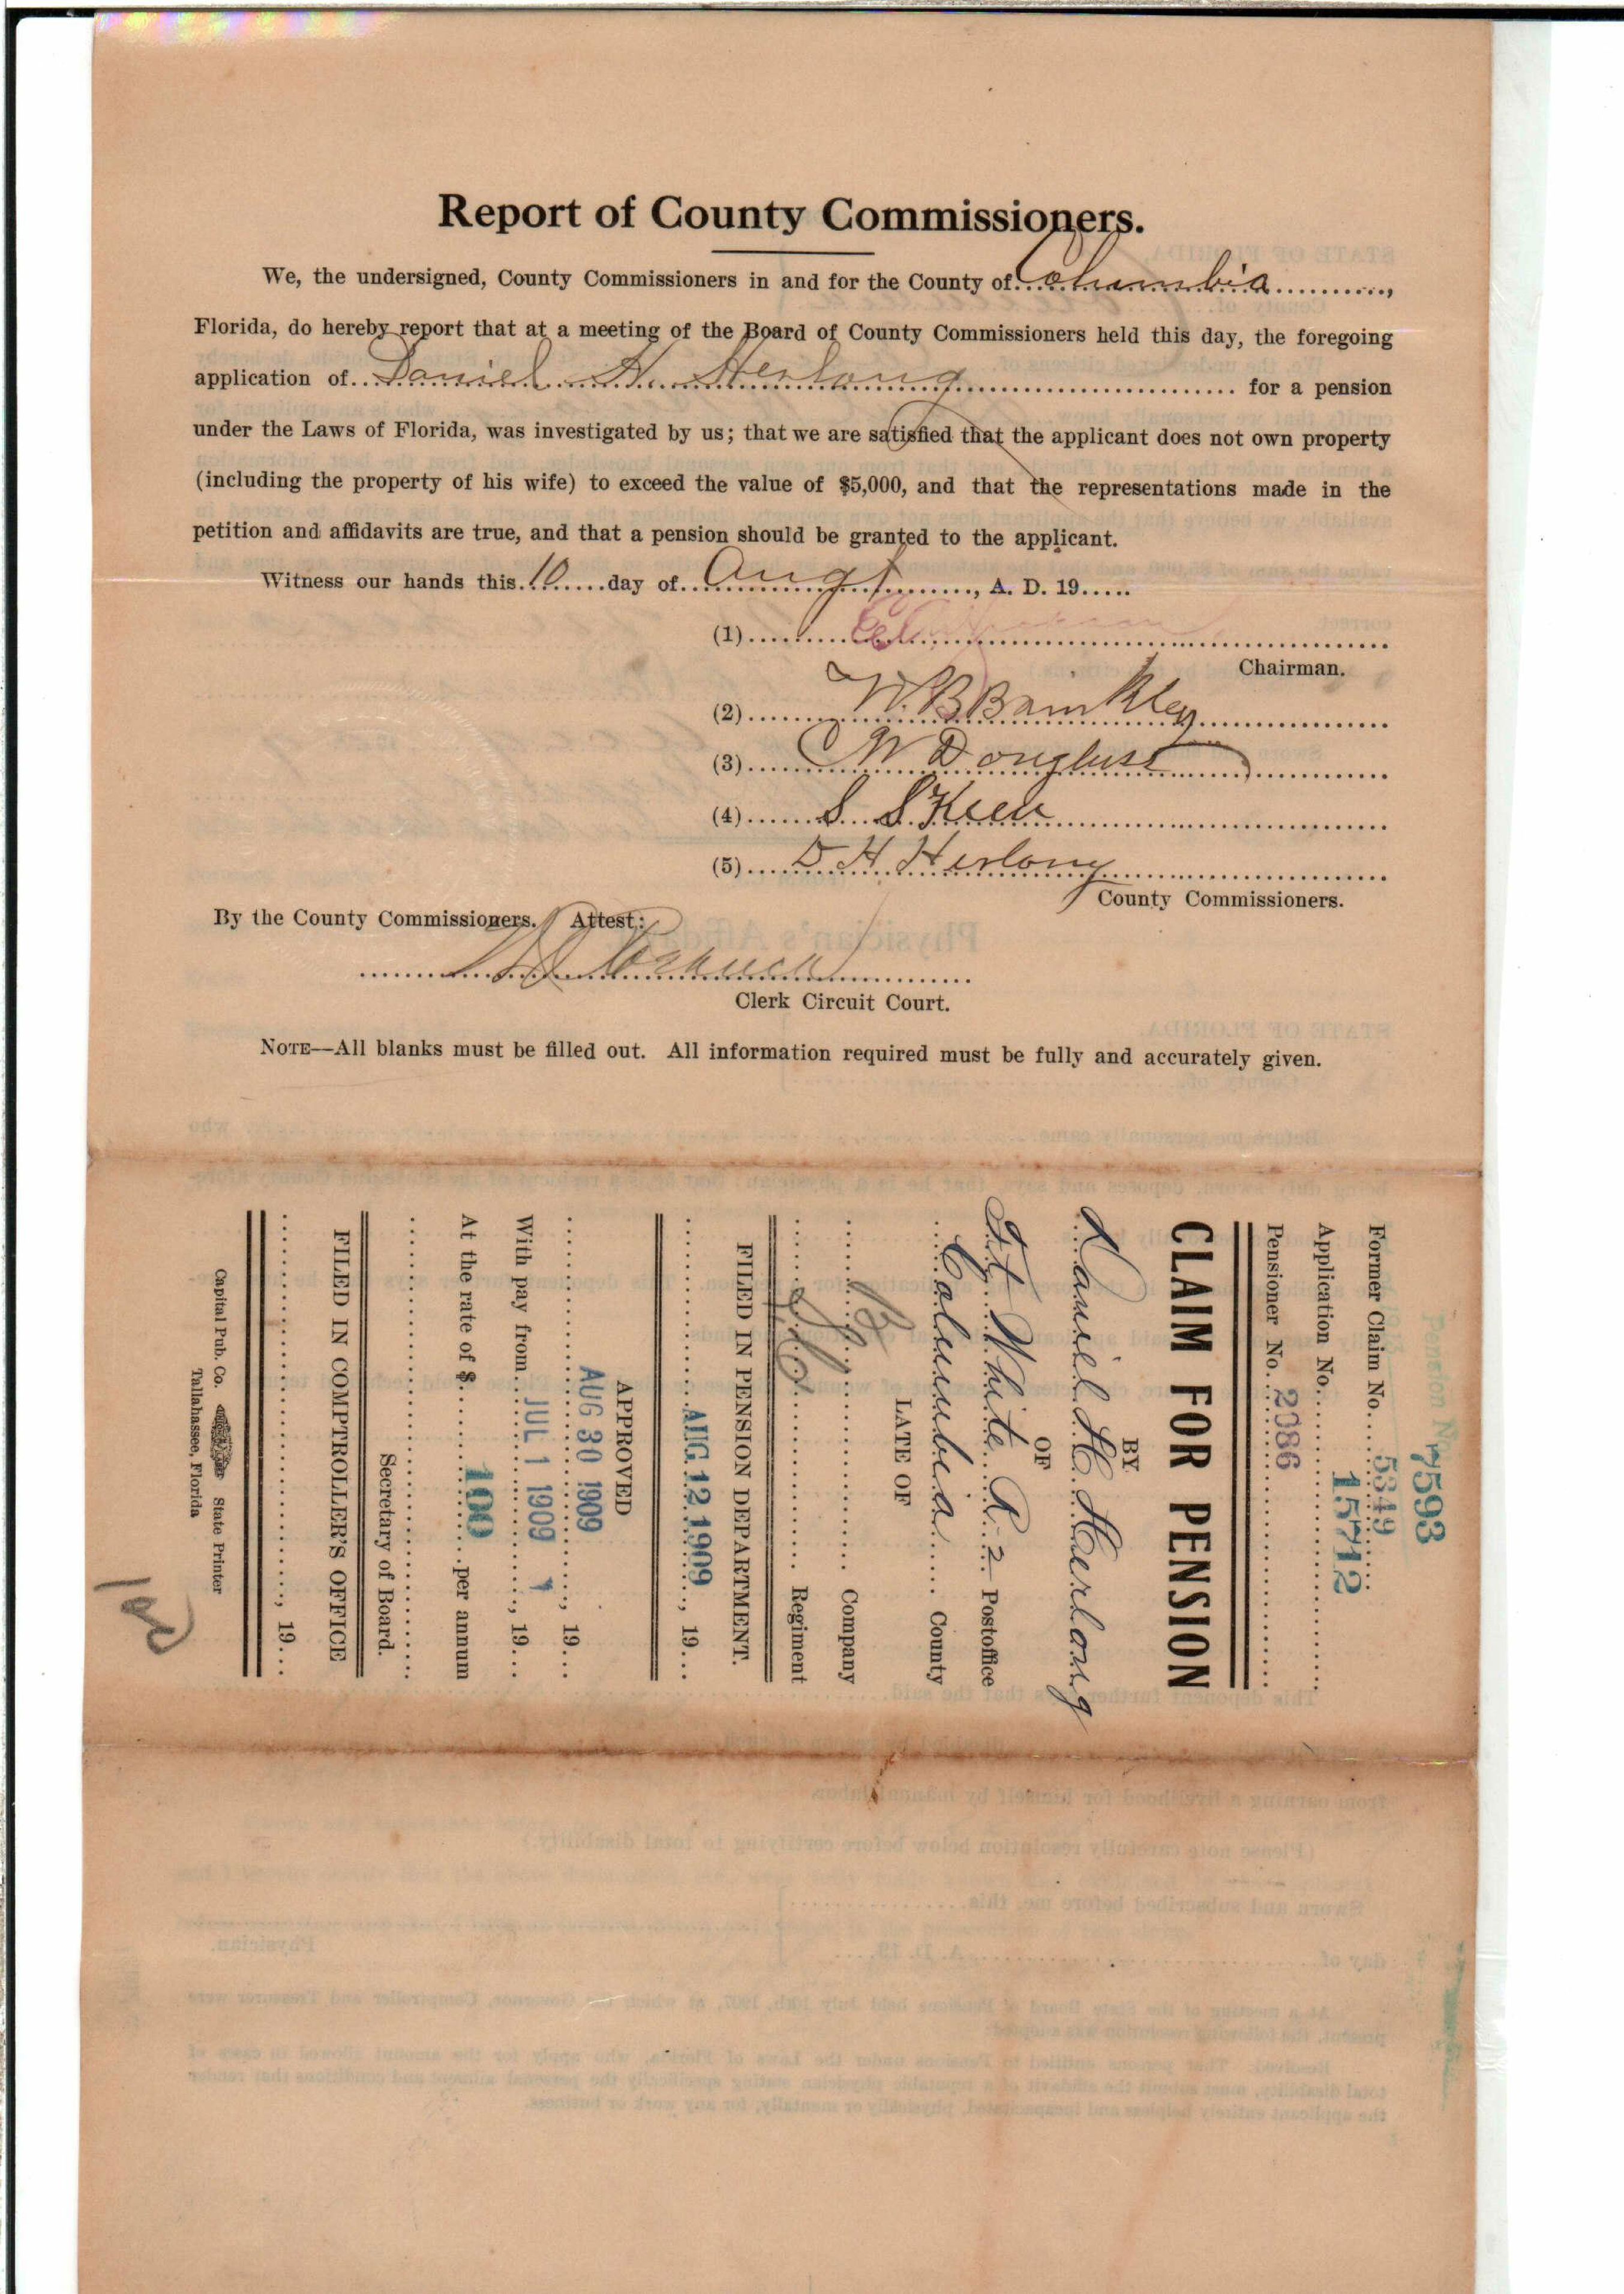 Report of County Commissioners.
We, the undersigned, County Commissioners in and for the County of Columbia,
Florida, do hereby report that at a meeting of the Board of County Commissioners held this day, the foregoing
application of Daniel H. Herlong for a pension
under the Laws of Florida, was investigated by us; that we are satisfied that the applicant does not own property
(including the property of his wife) to exceed the value of $5,000, and that the representations made in the
petition and affidavits are true, and that a pension should be granted to the applicant.
Witness our hands this 10 day of Augt, A. D. 19.....
(1)
Chairman.
(2) W. B. Brinkley
(3) W Douglass
(4) S. S. Keen
(5) D. H. Herlong
County Commissioners.
By the County Commissioners. Attest:
Clerk Circuit Court.
NOTE—All blanks must be filled out. All information required must be fully and accurately given.
Pension No. 7593
Former Claim No. 5349
Application No. 15712
Pensioner No. 2386
CLAIM FOR PENSION
BY
Daniel H Herlong
OF
Ft. White R. 2 Postoffice
Columbia County
LATE OF
Company
Regiment
FILED IN PENSION DEPARTMENT.
AUG 12 1909, 19...
APPROVED
AUG 30 1909, 19...
With pay from JUL 1 1909, 19...
At the rate of $ 100 per annum
Secretary of Board.
FILED IN COMPTROLLER'S OFFICE
, 19...
Capital Pub. Co. State Printer
Tallahassee, Florida